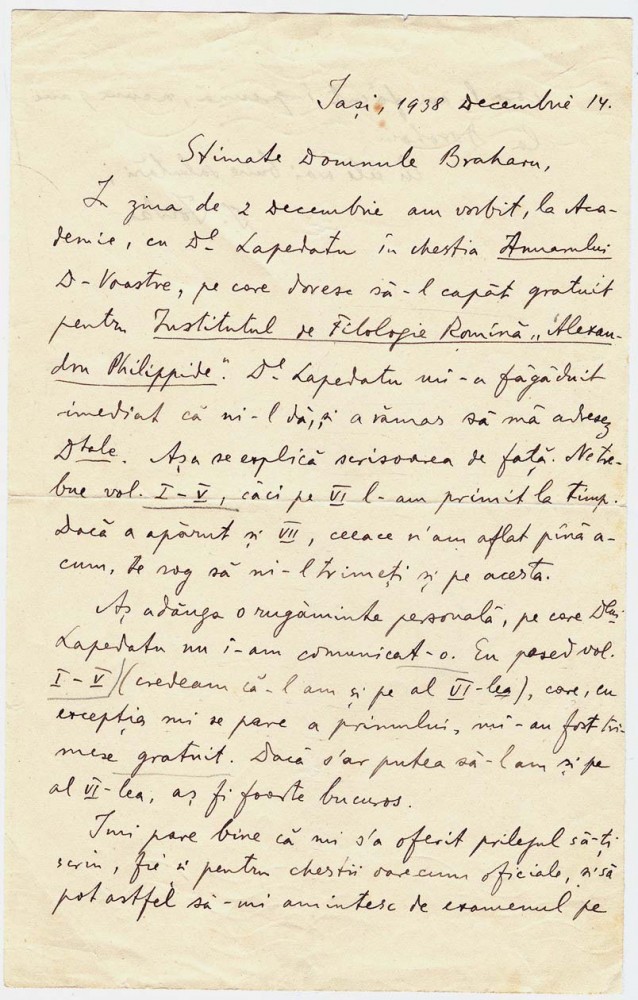 Iași, 1938 Decembrie 14.
Stimate Domnule Braharu,
In ziua de 2 Decembrie am vorbit, la Aca-
demie, cu Dl Lapedatu în chestia Anuarului
D-Voastre, pe care doresc să-l capăt gratuit
pentru Institutul de Filologie Romînă „Alexan-
dru Philippide". Dl Lapedatu mi-a făgăduit
imediat că ni-l dă, și a rămas să mă adresez
Dtale. Așa se explică scrisoarea de față. Ne tre-
bue vol. I-V, căci pe VI l-am primit la timp.
Dacă a apărut și VII, ceeace n'am aflat pînă a-
cum, te rog să ni-l trimeți și pe acesta.
Aș adăuga o rugăminte personală, pe care Dlui
Lapedatu nu i-am comunicat-o. Eu posed vol.
I-V (credeam că-l am și pe al VI-lea), care, cu
excepția mi se pare a primului, mi-au fost tri-
mese gratuit. Dacă s'ar putea să-l am și pe
al VI-lea, aș fi foarte bucuros.
Imi pare bine că mi s'a oferit prilejul să-ți
scriu, fie și pentru chestii oarecum oficiale, și să
pot astfel să-mi amintesc de examenul pe